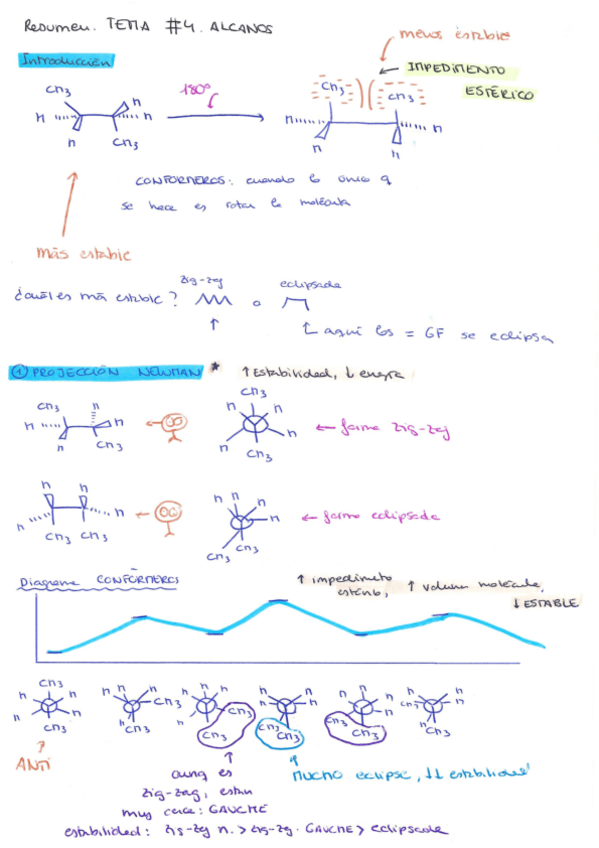 Resumen. TEMA #4. ALCANOS
menos estable
Introducción
IMPEDIMENTO
ESTÉRICO
CH3
H
H
H
H
CH3
180º
CH3
CH3
H
H
H
H
CONFÓRMEROS: cuando lo único q
se hace es rotar la molécula
más estable
¿cuál es más estable? zig-zag o eclipsada
aquí los = GF se eclipsa
① PROYECCIÓN NEWMAN * ↑ Estabilidad, ↓ energía
CH3
H
H
H
H
CH3
H
CH3
H
H
H
CH3
← forma zig-zag
H
H
H
H
CH3 CH3
H
H
H
H
CH3
CH3
← forma eclipsada
Diagrama CONFÓRMEROS
↑ impedimento estérico, ↑ volumen molécula,
↓ ESTABLE
CH3
H
H
H
H
CH3
H
H
H
CH3
H
CH3
H
H
H
H
CH3
CH3
H
H
H
H
CH3
CH3
H
H
H
H
CH3
CH3
H
H
H
H
CH3
CH3
ANTI
aunq es
zig-zag, están
muy cerca: GAUCHE
MUCHO eclipse, ↓↓ estabilidad
estabilidad: zig-zag n. > zig-zag. GAUCHE > eclipsada